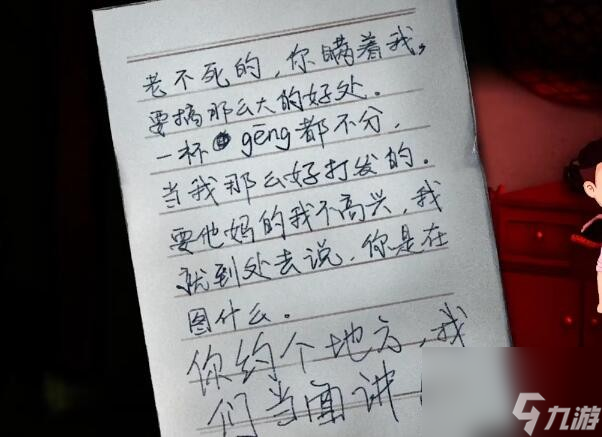 老不死的，你瞒着我，
要搞那么大的好处．
一杯 gēng 都不分，
当我那么好打发的．
要他妈的我不高兴，我
就到处去说，你是在
图什么。
你约个地方，我
们当面讲
九游